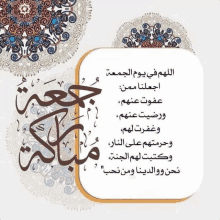 جمعة
مباركة
اللهم في يوم الجمعة
اجعلنا ممن:
عفوت عنهم،
ورضيت عنهم،
وغفرت لهم،
وحرمتهم على النار،
وكتبت لهم الجنة،
نحن ووالدينا ومن نحب"